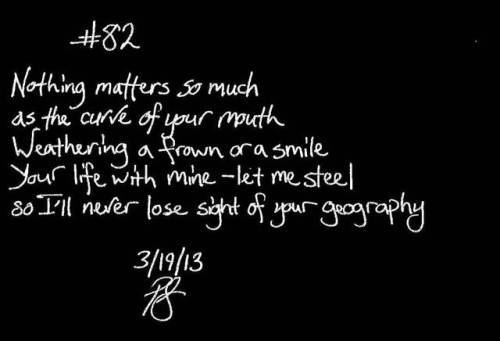 #82
Nothing matters so much
as the curve of your mouth
Weathering a frown or a smile
Your life with mine - let me steel
so I'll never lose sight of your geography
3/19/13